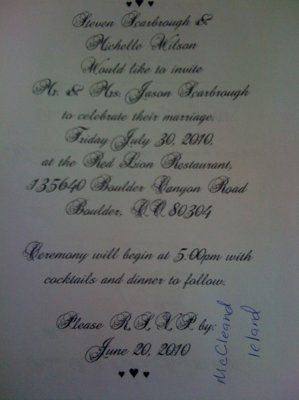 Steven Scarbrough &
Michelle Wilson
Would like to invite
Mr. & Mrs. Jason Scarbrough
to celebrate their marriage.
Friday July 30, 2010,
at the Red Lion Restaurant,
135640 Boulder Canyon Road
Boulder, C.O. 80304
Ceremony will begin at 5:00pm with
cocktails and dinner to follow.
Please R.S.V.P. by:
June 20, 2010
McCleand
Ireland